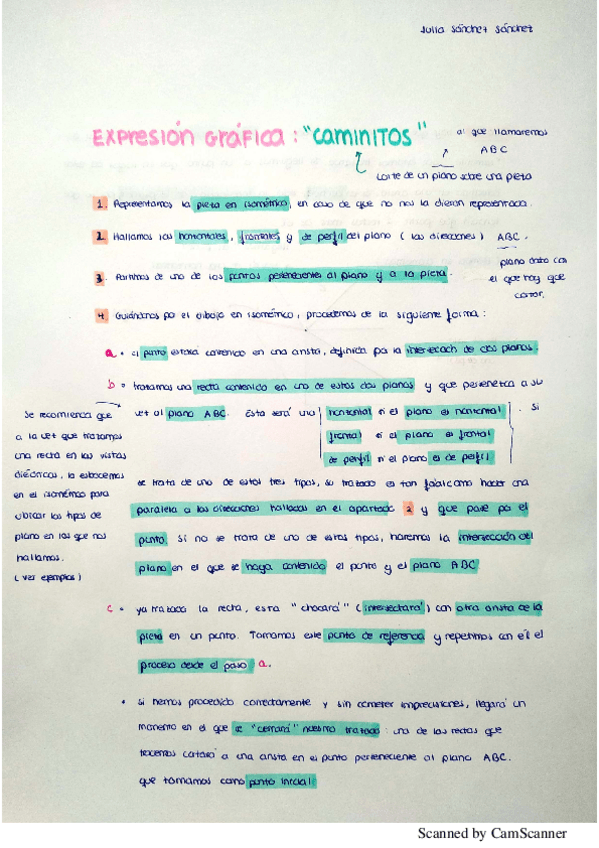 Julia Sánchez Sánchez
EXPRESIÓN GRÁFICA: "CAMINITOS"
al que llamaremos
ABC
corte de un plano sobre una pieza
1. Representamos la pieza en isométrico, en caso de que no nos la dieran representada.
2. Hallamos las horizontales, frontales y de perfil del plano (las direcciones) ABC.
plano dato con
el que hay que
cortar.
3. Partimos de uno de los puntos pertenecientes al plano y a la pieza.
4 Guiándonos por el dibujo en isométrico, procedemos de la siguiente forma:
a. el punto estará contenido en una arista, definida por la intersección de dos planos.
b. trazamos una recta contenida en uno de estos dos planos y que pertenezca a su
vez al plano ABC. Esta será una
horizontal si el plano es horizontal
frontal si el plano es frontal
de perfil si el plano es de perfil
. Si
se trata de uno de estos tres tipos, su trazado es tan fácil como hacer una
paralela a las direcciones halladas en el apartado 2 y que pase por el
punto. Si no se trata de uno de estos tipos, haremos la intersección del
plano en el que se haya contenido el punto y el plano ABC
Se recomienda que
a la vez que trazamos
una recta en las vistas
diédricas, la esbocemos
en el isométrico para
ubicar los tipos de
plano en los que nos
hallamos.
(ver ejemplos)
c. ya trazada la recta, esta "chocará" (intersectará) con otra arista de la
pieza en un punto. Tomamos este punto de referencia y repetimos con él el
proceso desde el paso a.
• Si hemos procedido correctamente y sin cometer imprecisiones, llegará un
momento en el que se "cerrará" nuestro trazado: una de las rectas que
tracemos cortará a una arista en el punto perteneciente al plano ABC.
que tomamos como punto inicial
Scanned by CamScanner